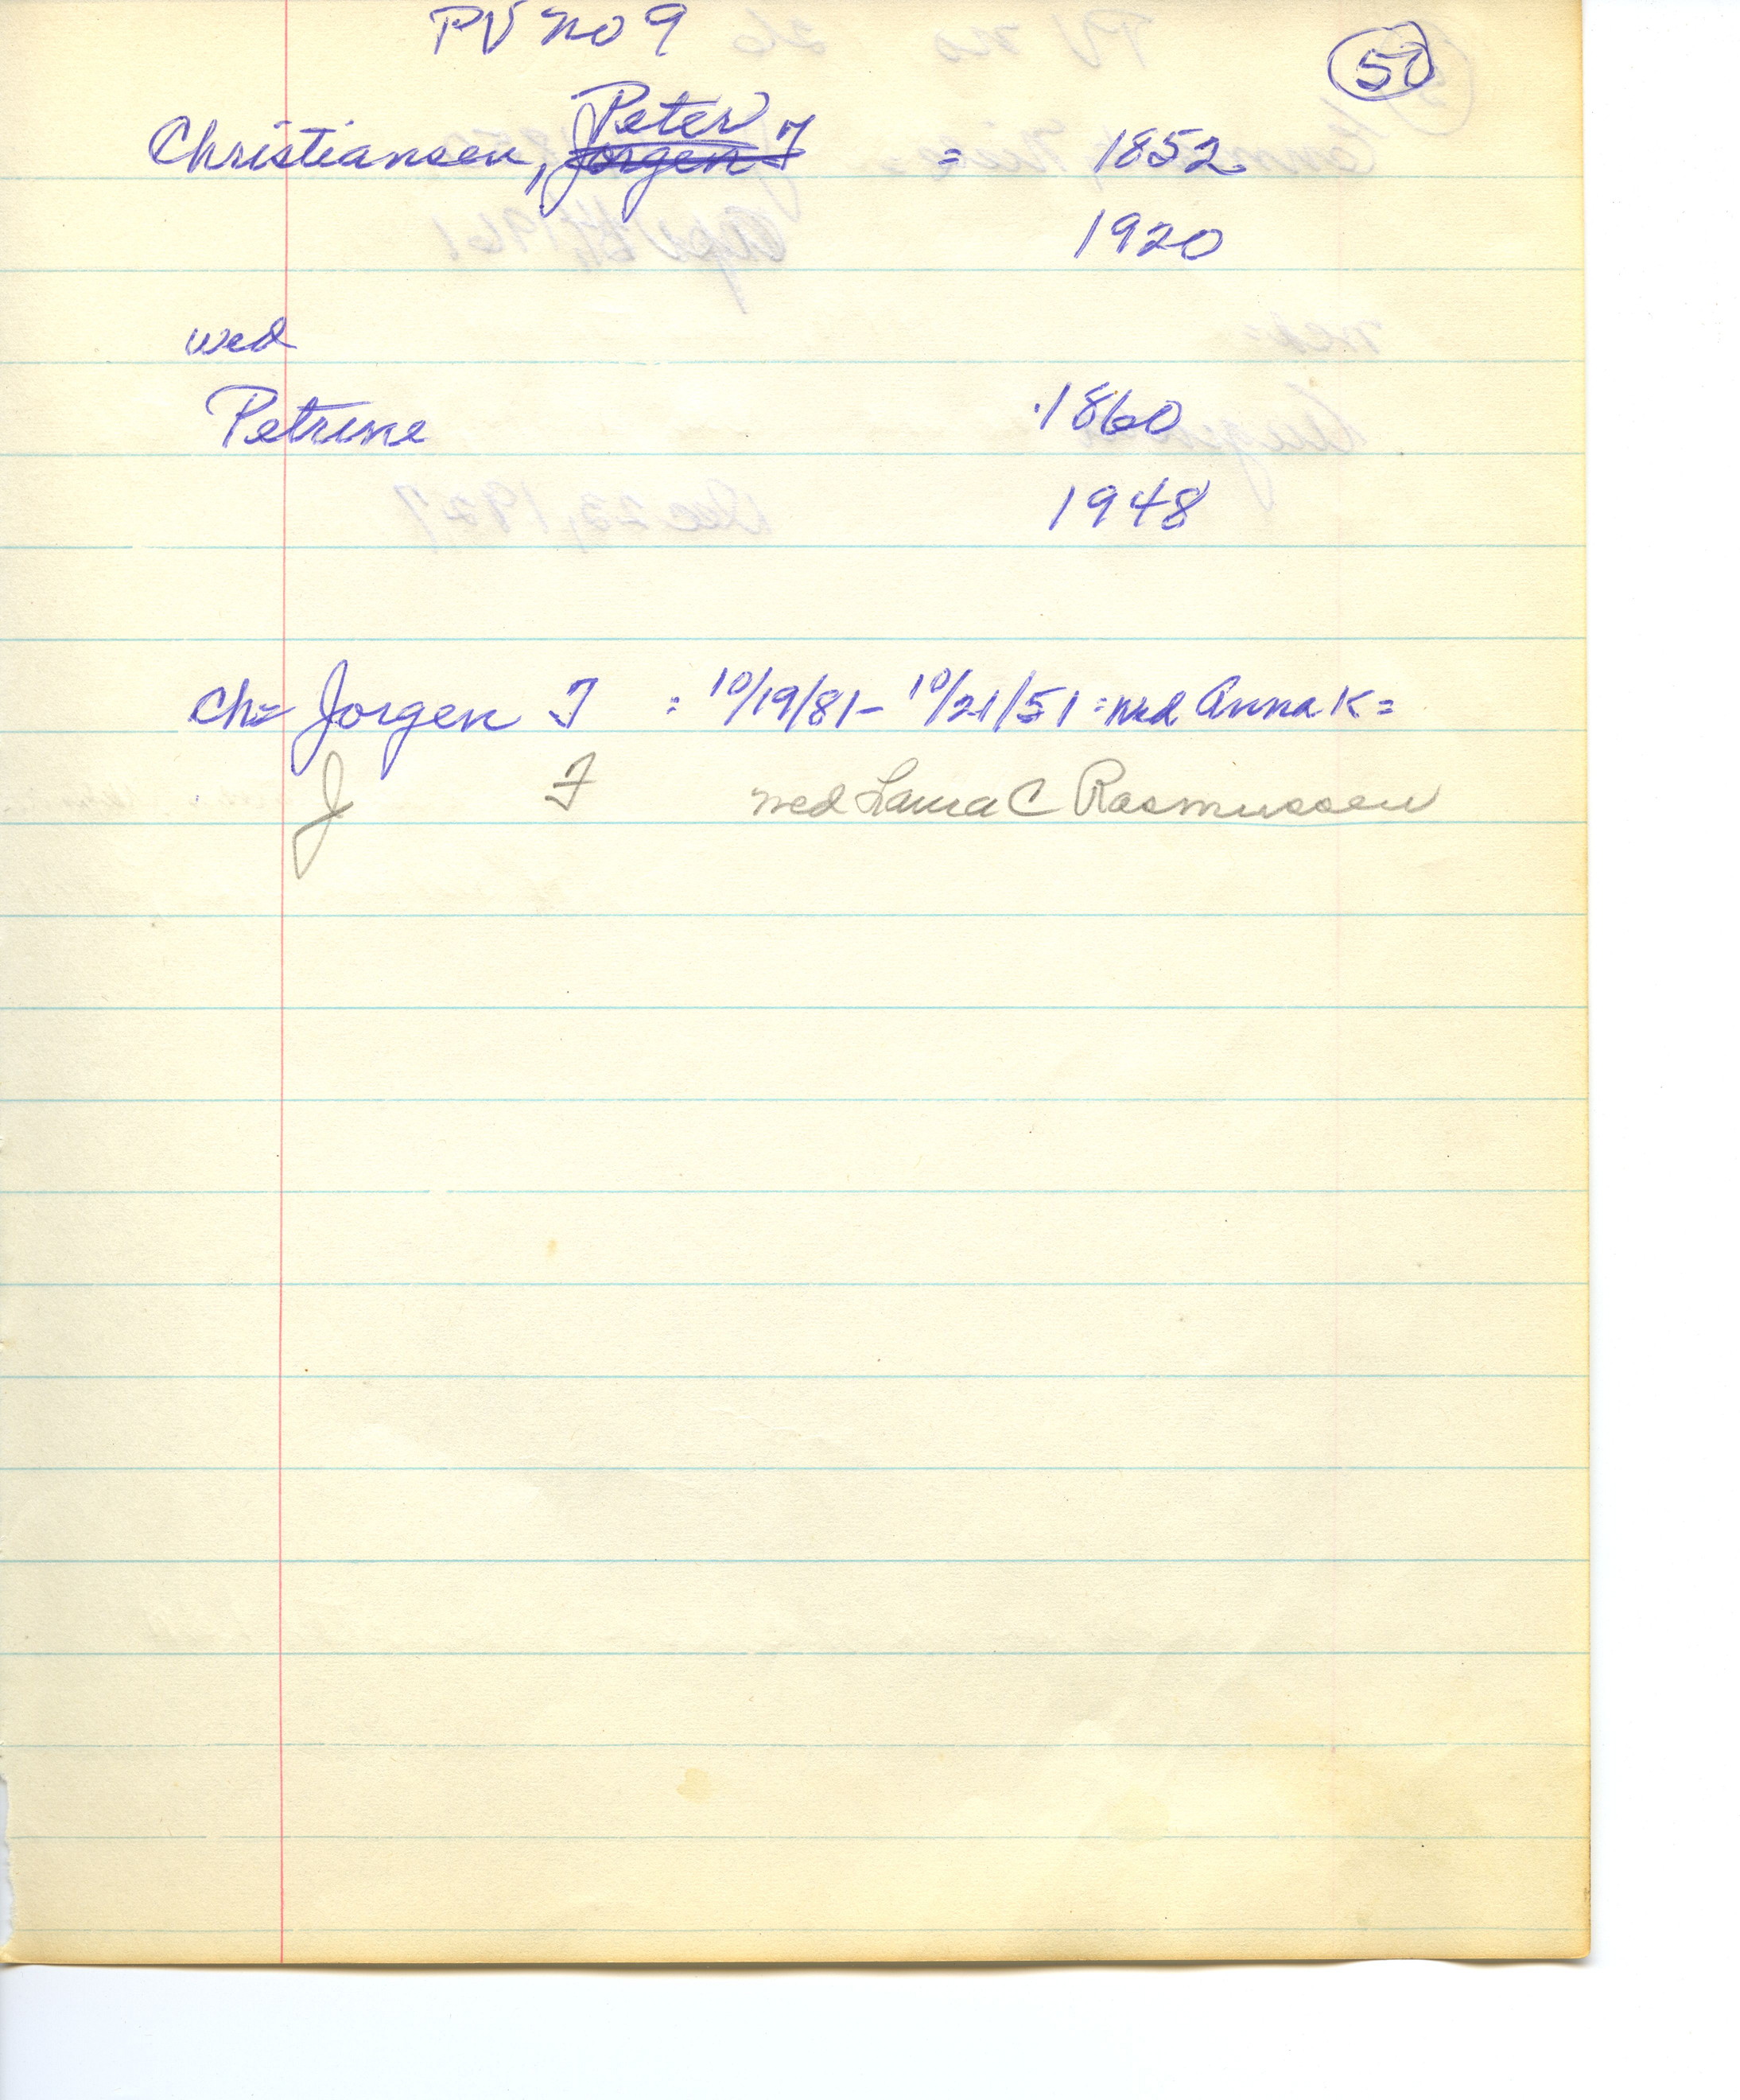 PV no 9
50
Peter
Christiansen, Jorgen F = 1852
1920
wed
Petrine 1860
1948
Ch= Jorgen F : 10/19/81 - 10/21/51 : wed Anna K =
J F wed Laura C Rasmussen